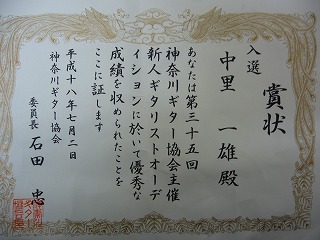 賞状
入選
中里 一雄 殿
あなたは第三十五回
神奈川ギター協会主催
新人ギタリストオーデ
ィションに於いて優秀な
成績を収められたことを
ここに証します
平成十八年七月二日
神奈川ギター協会
委員長 石田 忠